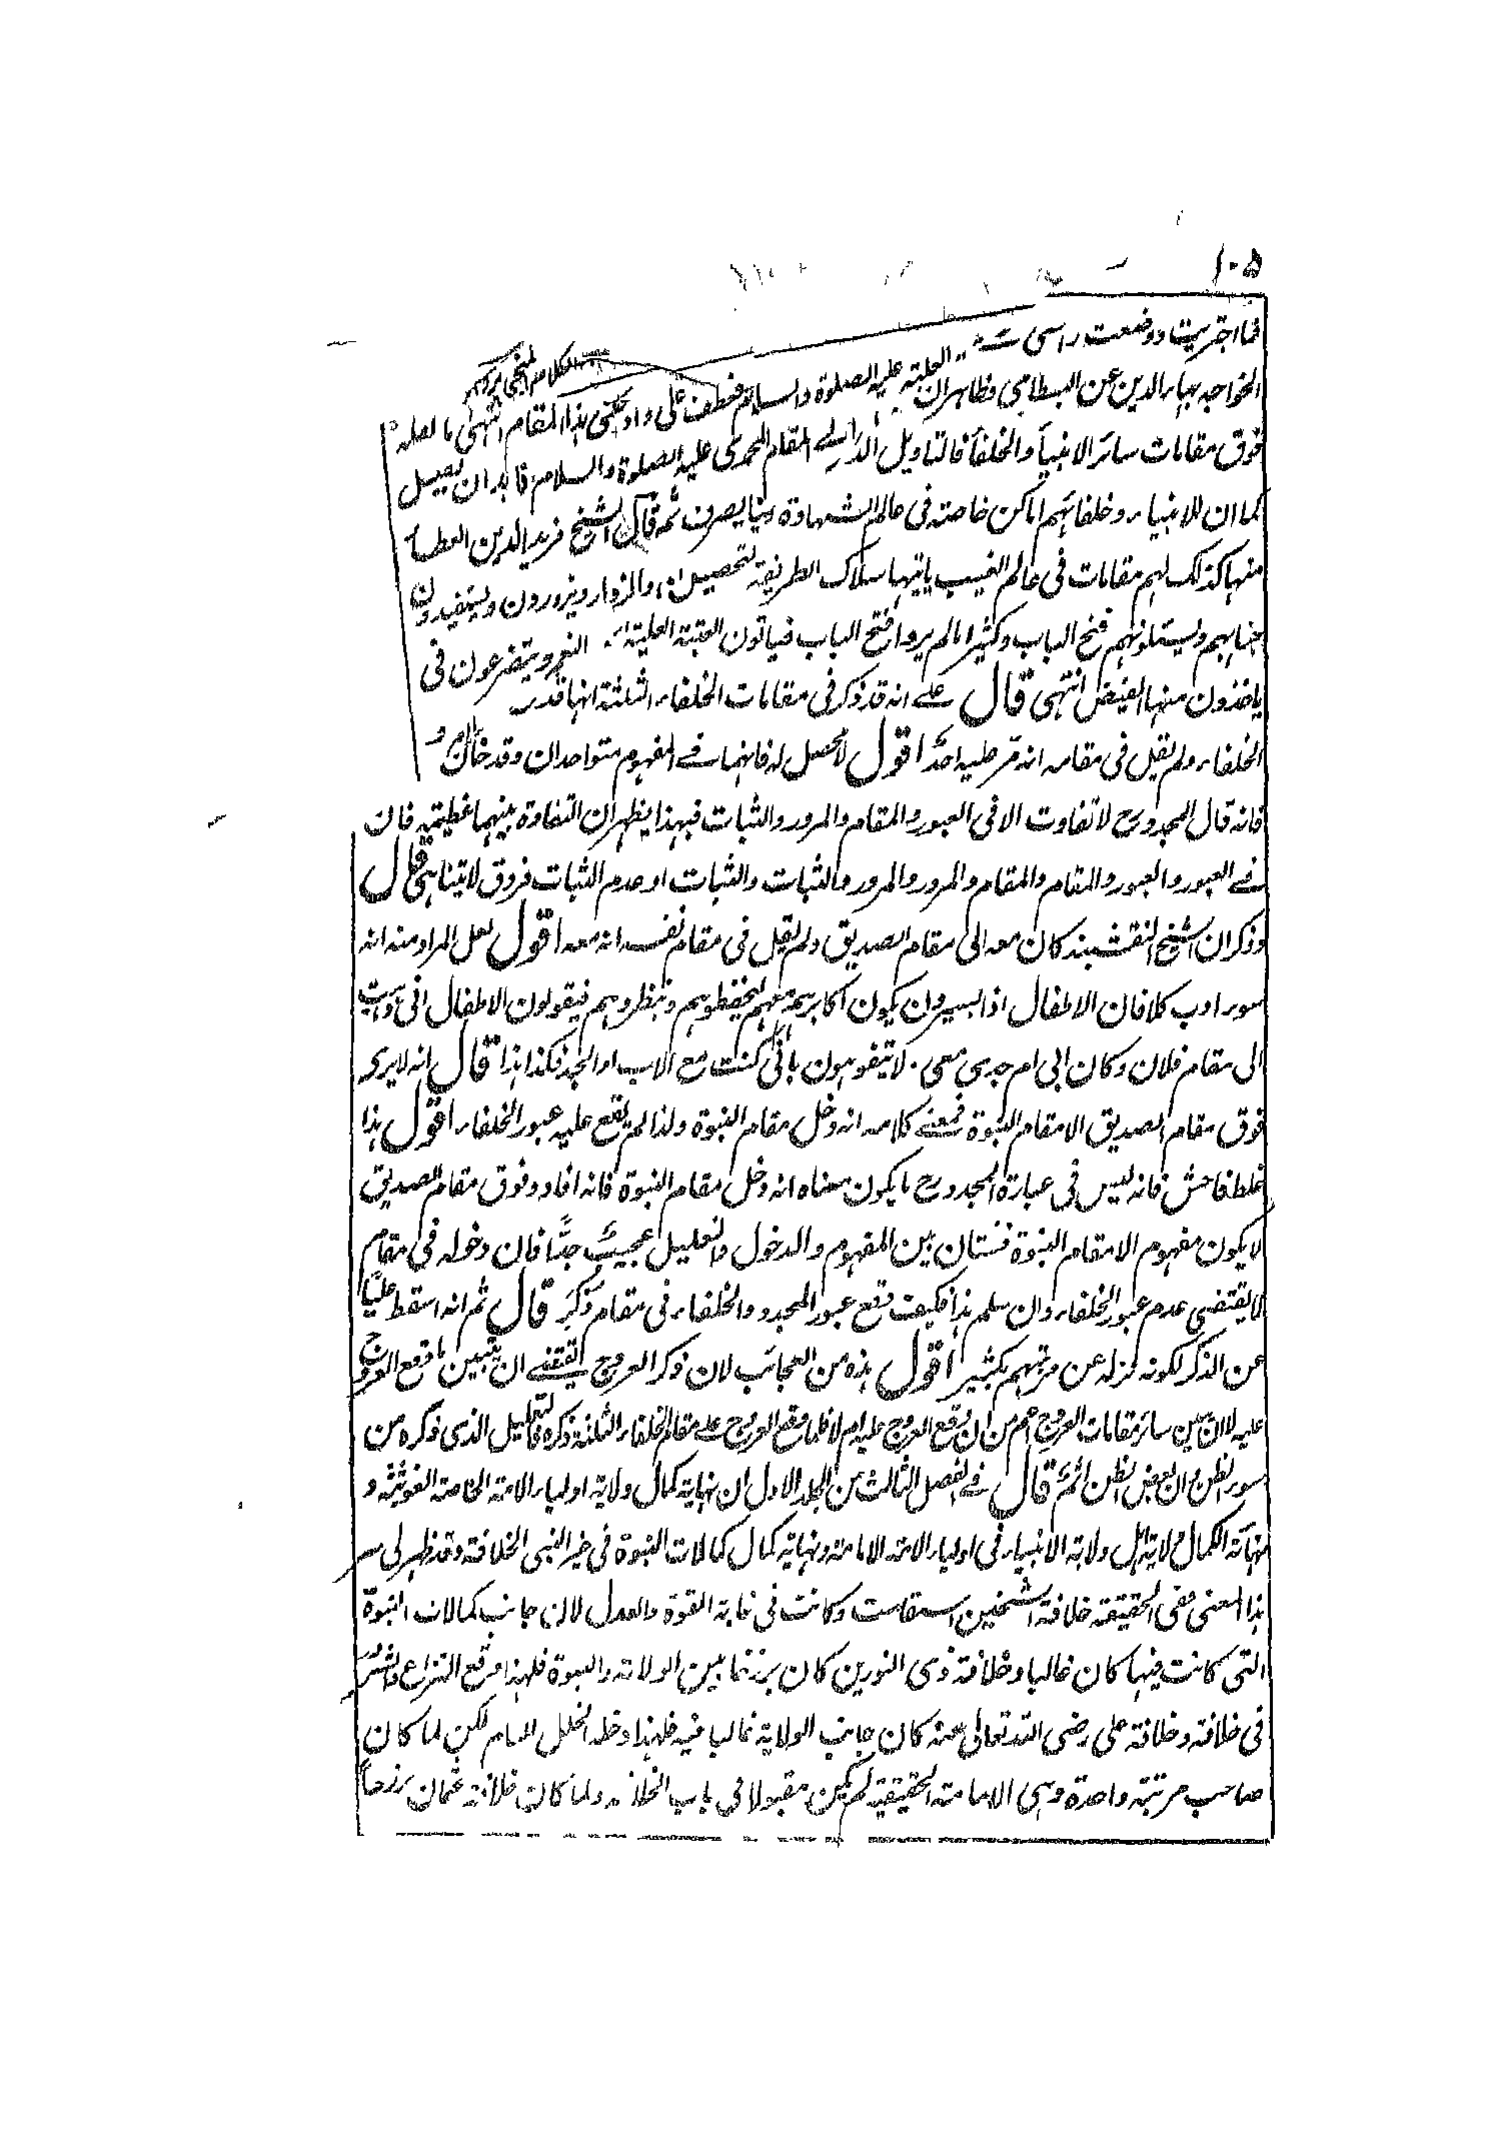 ١٠٥
فما اجتريت ووضعت راسى العلية عليه الصلوة والسلام فعطف على وادخلنى هذا المقام انتهى ما لعله
الخواجه بهاء الدين عن البسطامى فظاهر ان المقام المحمدى عليه الصلوة والسلام
فوق مقامات سائر الانبيآ والخلفآ فالتاويل ثم قال الشيخ فريد الدين العطا
كما ان للانبياء وخلفائهم اماكن خاصته فى عالم الشهادة والزوار ويزورون ويستفيدون
منها كذلك لهم مقامات فى عالم الغيب ياتيها سلاك الطريقة لتحصيل ويتضرعون فى
جنابهم ويسئلونهم فتح الباب وكثيرا ما لم يروا فتح الباب فياتون العتبة العلية
ياخذون منها الفيض انتهى قال على انه قد ذكر فى مقامات الخلفاء الثلثة انها قدر
الخلفاء ولم يقل فى مقامه انه مر عليه احد اقول لا محصل له فانهما فى المفهوم متواحدان وقد خان
فانه قال المجدد رح لا تفاوت الا فى العبور والمقام والمرور والثبات فبهذا يظهر ان التفاوة بينهما عظيمة فان
فى العبور والعبور والمقام والمقام والمرور والمرور والثبات والثبات او عدم الثبات فروق لا تتناهى قال
وذكر ان الشيخ النقشبند كان معه الى مقام الصديق ولم يقل فى مقام نفسه انه معه اقول لعل المراد منه انه
سوء ادب كلا فان الاطفال اذا يسيرون يكون اكابرهم معهم ليحفظوهم وينظروهم فيقولون الاطفال انى وصلت
الى مقام فلان وكان ابى ام جدى معى. لا يتفوهون بانى كنت مع الاب او الجد فكذا هذا قال انه لا يرى
فوق مقام الصديق الا مقام النبوة فمعنى كلامه انه دخل مقام النبوة ولذا لم يقع عليه عبور الخلفاء اقول هذا
غلط فاحش فانه ليس فى عبارة المجدد رح ما يكون معناه انه دخل مقام النبوة فانه افاد وفوق مقام الصديق
لا يكون مفهوم الا مقام النبوة فشتان بين المفهوم والدخول والتعليل عجيب جدًّا فان دخوله فى مقام
لا يقتضى عدم عبور الخلفاء وان سلم هذا فكيف وقع عبور المجدد والخلفاء فى مقام ذكر قال ثم انه اسقط عليًا
عن الذكر لكونه نزله عن مرتبتهم بكثير اقول هذه من العجائب لان ذكر العروج يقتضى ان يتبين ما وقع العروج
عليه لا ان يبين سائر مقامات العروج اعم من ان وقع العروج عليه ام لا فلما وقع العروج على مقام الخلفاء الثلثة ذكره فالتعليل الذى ذكره من
سوء الظن وان بعض الظن اثم قال فى الفصل الثالث من الجلد الاول ان نهاية كمال ولاية اولياء الامة الخاصة الغوثية و
نهاية الكمال ولاية الانبياء فى اولياء الامة الامامة ونهاية كمال كمالات النبوة فى غير النبى الخلافة وقد ظهر لى سر
هذا المعنى ففى الحقيقة خلافة الشيخين استقامت وكانت فى غاية القوة والعدل لان جانب كمالات النبوة
التى كانت فيها كان غالبا وخلافة ذى النورين كان برزخا بين الولاية والنبوة فلهذا وقع النزاع والشر
فى خلافة وخلافة على رضى الله تعالى عنه كان جانب الولاية غالبا فيه فلهذا دخله الخلل التام لكن لما كان
صاحب مرتبة واحدة وهى الامامة الحقيقية لم يكن مقبولا فى باب الخلافة ولما كان خلافة عثمان برزخاً